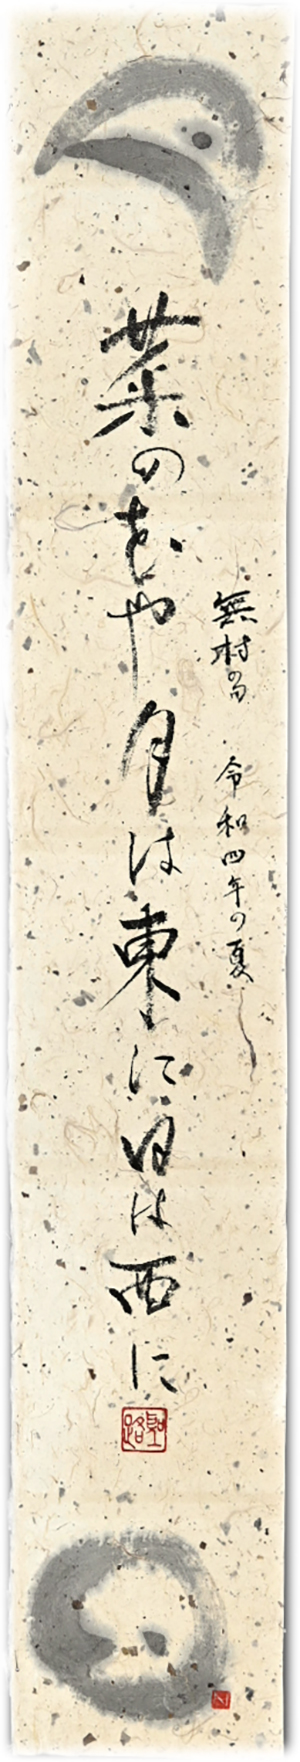 無村の句 令和四年の夏
菜の花や月は東に日は西に
聖路